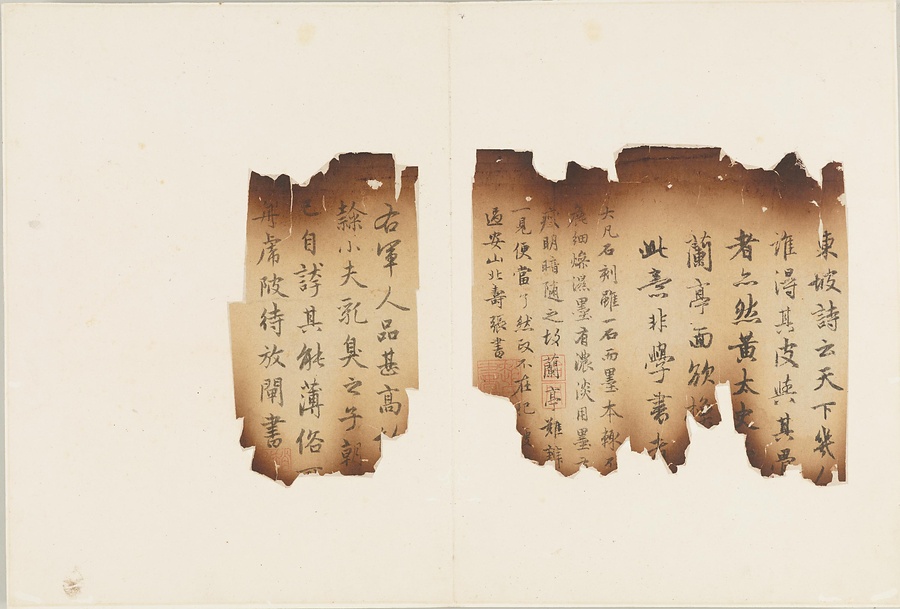 東坡詩云天下幾人
誰淂其皮與其骨
者亦然黃太史
蘭亭面欲換
此意非學書者
大凡石刻雖一石而墨本輒不
細燥濕墨有濃淡用墨有
明暗随之故蘭亭難辨
一見便當了然政不在肥
過安山北壽張書
右軍人品甚高
隸小夫乳臭之子朝
已自誇其能薄俗可
舟虎陂待放閘書